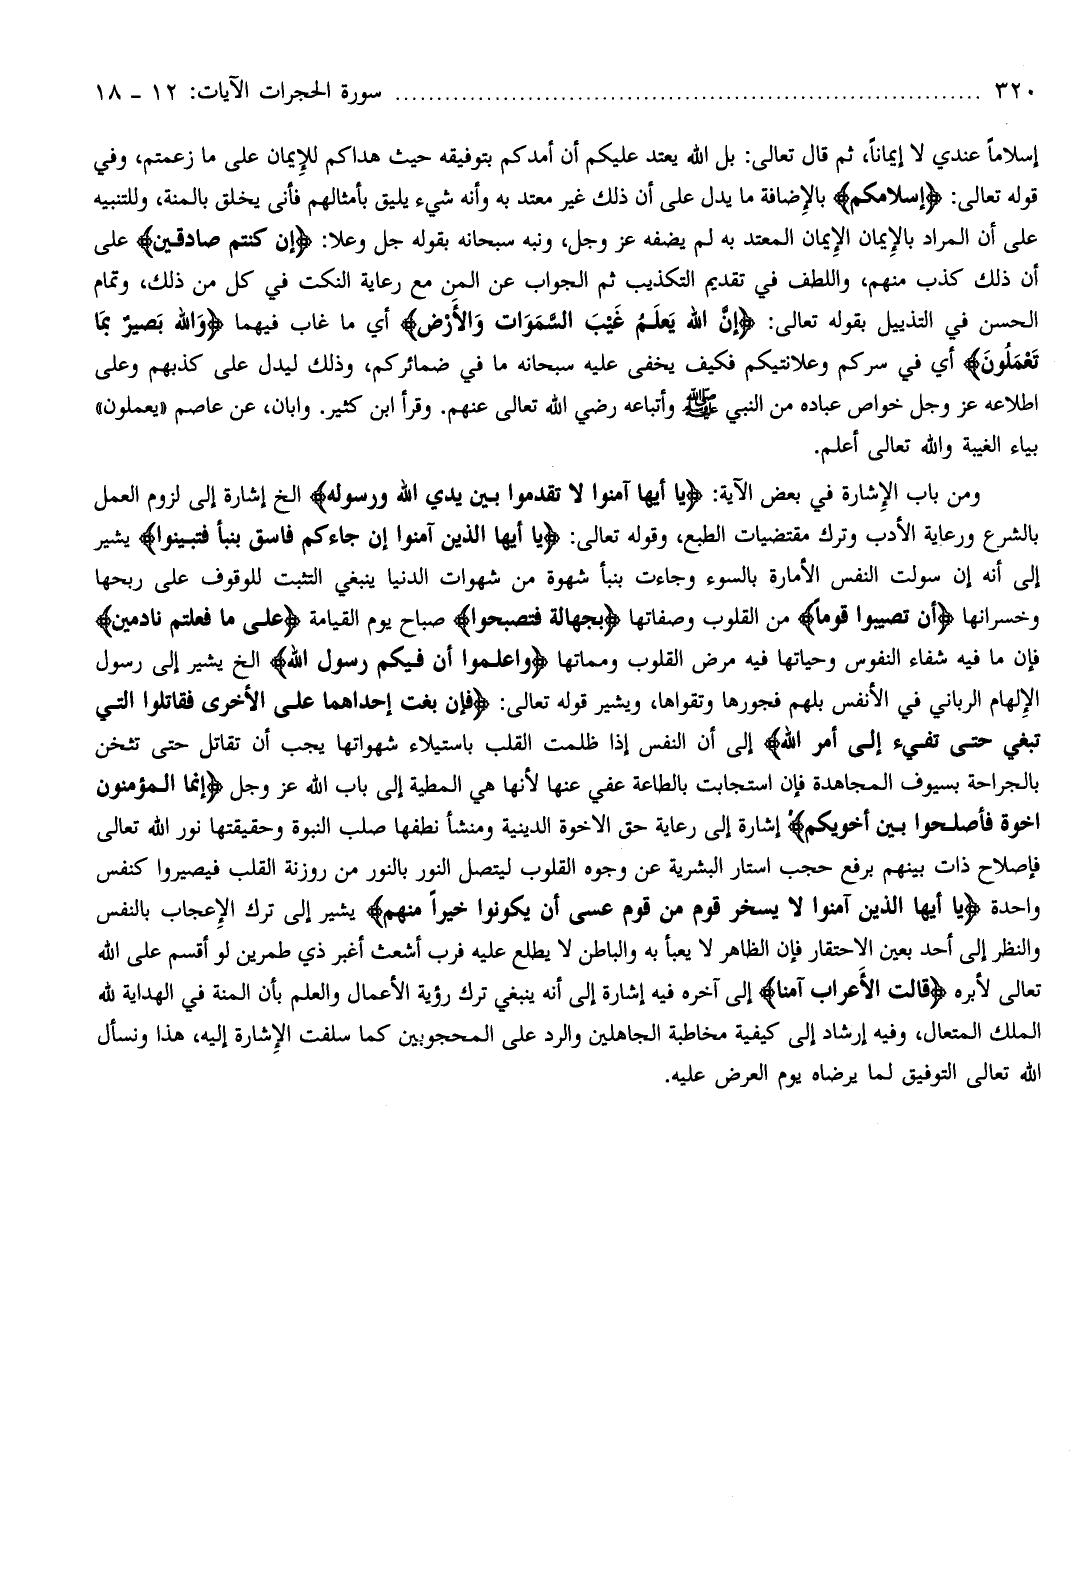 ٣٢٠ ........................................................................ سورة الحجرات الآيات: ١٢ - ١٨
إسلاماً عندي لا إيماناً، ثم قال تعالى: بل الله يعتد عليكم أن أمدكم بتوفيقه حيث هداكم للإيمان على ما زعمتم، وفي
قوله تعالى: ﴿إسلامكم﴾ بالإضافة ما يدل على أن ذلك غير معتد به وأنه شيء يليق بأمثالهم فأنى يخلق بالمنة، وللتنبيه
على أن المراد بالإيمان الإيمان المعتد به لم يضفه عز وجل، ونبه سبحانه بقوله جل وعلا: ﴿إن كنتم صادقين﴾ على
أن ذلك كذب منهم، واللطف في تقديم التكذيب ثم الجواب عن المن مع رعاية النكت في كل من ذلك، وتمام
الحسن في التذييل بقوله تعالى: ﴿إنَّ الله يَعلَمُ غَيْبَ السَّمَوَات وَالأَرْض﴾ أي ما غاب فيهما ﴿وَالله بَصيرٌ بمَا
تَعْمَلُونَ﴾ أي في سركم وعلانتيكم فكيف يخفى عليه سبحانه ما في ضمائركم، وذلك ليدل على كذبهم وعلى
اطلاعه عز وجل خواص عباده من النبي ﷺ وأتباعه رضي الله تعالى عنهم. وقرأ ابن كثير. وابان، عن عاصم «يعملون»
بياء الغيبة والله تعالى أعلم.
ومن باب الإشارة في بعض الآية: ﴿يا أيها آمنوا لا تقدموا بين يدي الله ورسوله﴾ الخ إشارة إلى لزوم العمل
بالشرع ورعاية الأدب وترك مقتضيات الطبع، وقوله تعالى: ﴿يا أيها الذين آمنوا إن جاءكم فاسق بنبأ فتبينوا﴾ يشير
إلى أنه إن سولت النفس الأمارة بالسوء وجاءت بنبأ شهوة من شهوات الدنيا ينبغي التثبت للوقوف على ربحها
وخسرانها ﴿أن تصيبوا قوماً﴾ من القلوب وصفاتها ﴿بجهالة فتصبحوا﴾ صباح يوم القيامة ﴿على ما فعلتم نادمين﴾
فإن ما فيه شفاء النفوس وحياتها فيه مرض القلوب ومماتها ﴿واعلموا أن فيكم رسول الله﴾ الخ يشير إلى رسول
الإلهام الرباني في الأنفس بلهم فجورها وتقواها، ويشير قوله تعالى: ﴿فإن بغت إحداهما على الأخرى فقاتلوا التي
تبغي حتى تفيء إلى أمر الله﴾ إلى أن النفس إذا ظلمت القلب باستيلاء شهواتها يجب أن تقاتل حتى تثخن
بالجراحة بسيوف المجاهدة فإن استجابت بالطاعة عفي عنها لأنها هي المطية إلى باب الله عز وجل ﴿إنما المؤمنون
اخوة فأصلحوا بين أخويكم﴾ إشارة إلى رعاية حق الاخوة الدينية ومنشأ نطفها صلب النبوة وحقيقتها نور الله تعالى
فإصلاح ذات بينهم برفع حجب استار البشرية عن وجوه القلوب ليتصل النور بالنور من روزنة القلب فيصيروا كنفس
واحدة ﴿يا أيها الذين آمنوا لا يسخر قوم من قوم عسى أن يكونوا خيراً منهم﴾ يشير إلى ترك الإعجاب بالنفس
والنظر إلى أحد بعين الاحتقار فإن الظاهر لا يعبأ به والباطن لا يطلع عليه فرب أشعث أغبر ذي طمرين لو أقسم على الله
تعالى لأبره ﴿قالت الأعراب آمنا﴾ إلى آخره فيه إشارة إلى أنه ينبغي ترك رؤية الأعمال والعلم بأن المنة في الهداية لله
الملك المتعال، وفيه إرشاد إلى كيفية مخاطبة الجاهلين والرد على المحجوبين كما سلفت الإشارة إليه، هذا ونسأل
الله تعالى التوفيق لما يرضاه يوم العرض عليه.